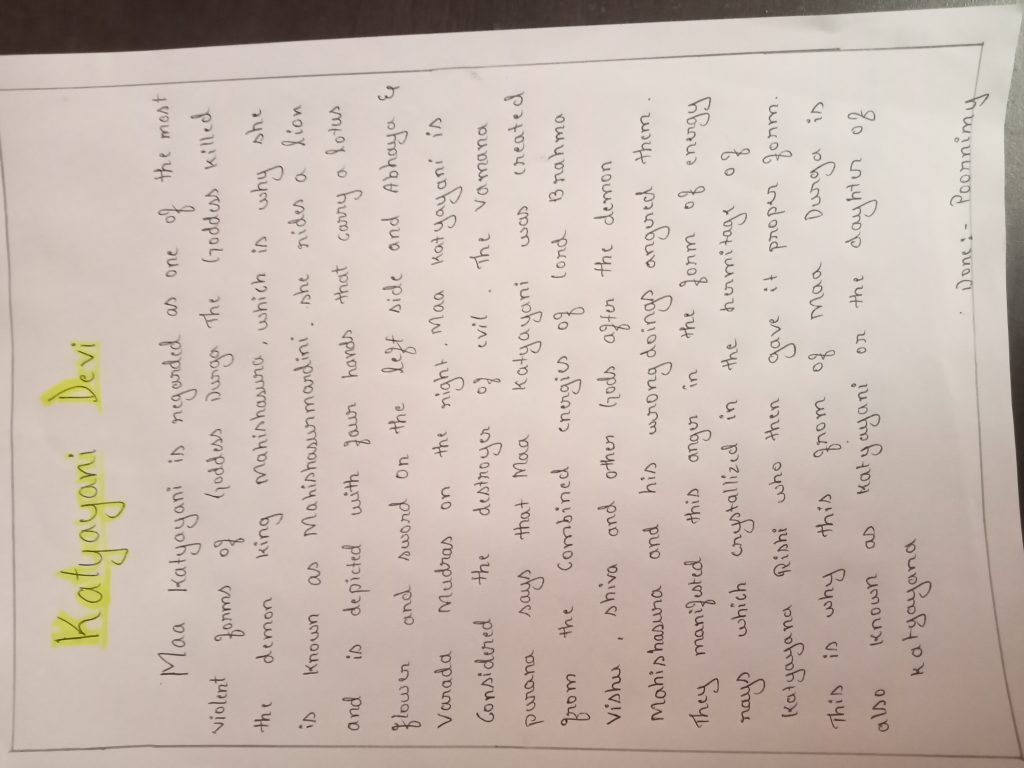 Katyayani Devi
Maa Katyayani is regarded as one of the most
violent forms of Goddess Durga The Goddess killed
the demon king Mahishasura, which is why she
is known as Mahishasurmardini. she rides a lion
and is depicted with four hands that carry a lotus
flower and sword on the left side and Abhaya &
Varada Mudras on the right. Maa Katyayani is
Considered the destroyer of evil. The Vamana
purana says that Maa Katyayani was created
from the Combined energies of lord Brahma
Vishu, shiva and other Gods after the demon
Mahishasura and his wrongdoings angured them.
They manifested this anger in the form of energy
rays which crystallized in the hermitage of
Katyayana Rishi who then gave it proper form.
This is why this from of Maa Durga is
also known as Katyayani or the dayhter of
Katyayana
Done:- Poornimy